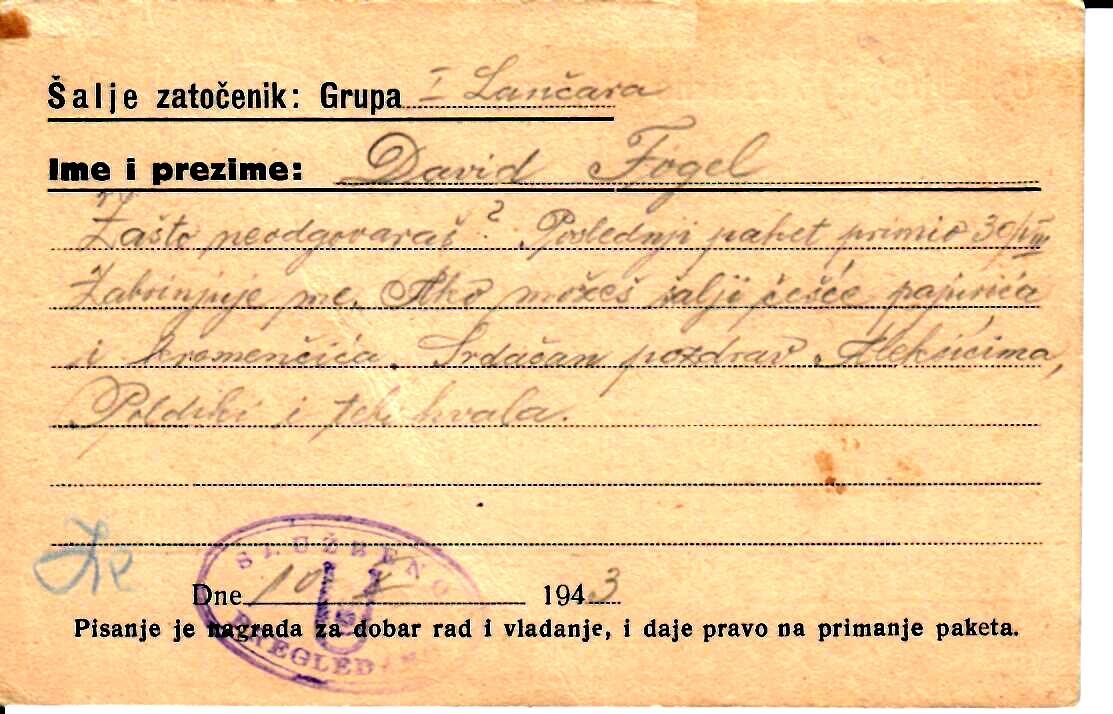 Šalje zatočenik: Grupa I Lančara
Ime i prezime: David Fogel
Zašto neodgovaraš? Poslednji paket primio 30/VIII
Zabrinjuje me. Ako možeš šalji češće papirića
i kremenčića. Srdačan pozdrav Aleksićima,
Poldiki i tebi hvala.
SLUŽBENO
U
Dne 10 X 1943
Pisanje je nagrada za dobar rad i vladanje, i daje pravo na primanje paketa.